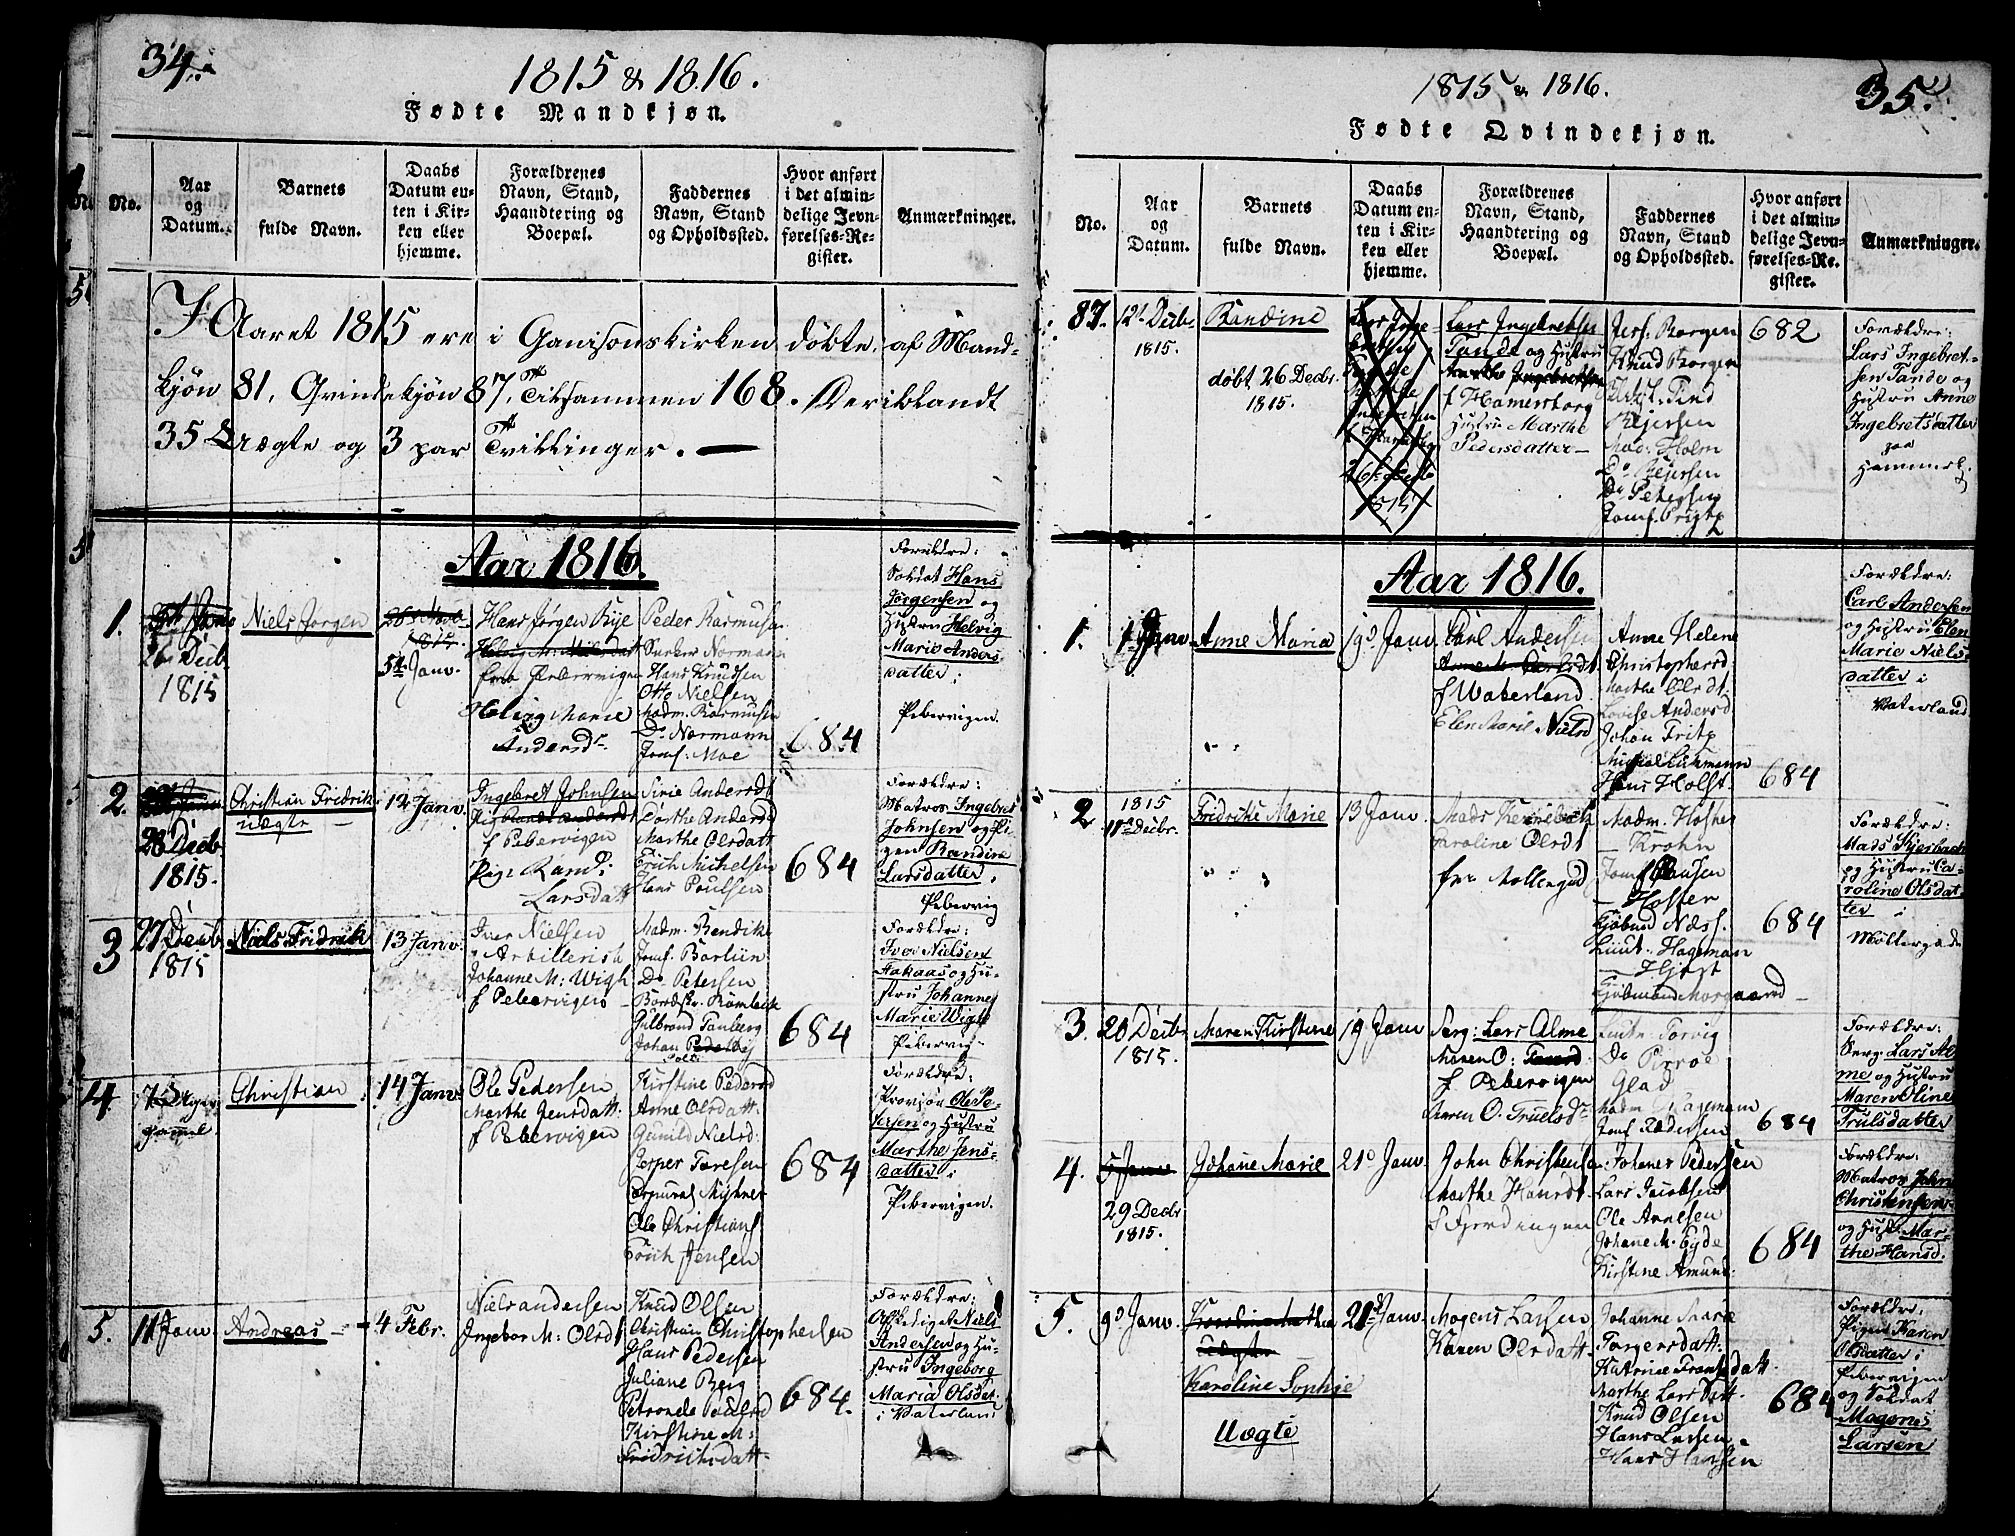 34.
1815 & 1816.
Fødte Mandkjøn.
No.
Aar
og
Datum.
Barnets
fulde Navn.
Daabs
Datum en-
ten i Kir-
ken eller
hjemme.
Forældrenes
Navn, Stand,
Haandtering og
Boepæl.
Faddernes
Navn, Stand
og Opholdssted.
Hvor anført
i det almin-
delige Jevn-
førelses-Re-
gister.
Anmærkninger.
I Aaret 1815 ere i Ganisonskirken døbte, af Mand-
kjøn 81, Qvindekjøn 87, Tilsammen 168. Deriblandt
35 Uægte og 3 par Tvillinger. —
Aar 1816.
1.
26 Decb.
1815
Niels Jørgen
5te Janv.
Hans Jørgen Rye
fra Pebervigen
Helvig Marie
Andersdr
Peder Rasmusen
Hans Knudsen
Otto Nielsen
Madm. Rasmusen
Do Normann
Jomf: Moe
684
Forældre:
Soldat Hans
Jørgensen og
Hustru Helvig
Marie Anders-
datter;
Pibervigen.
2.
28 Decb.
1815.
Christian Fridrik
uægte —
12 Janv.
Ingebret Johnsen
f Pebervigen
Pige Rand:
Larsdatt
Sirie Andersdt
Dorthe Andersd
Marthe Olsdatt
Erich Michelsen
Hans Poulsen
684
Forældre:
Matros Ingebret
Johnsen og Pi-
gen Randine
Larsdatter,
Pibervig
3
27 Decb.
1815
Niels Fridrik
13 Janv.
Iver Nielsen
Artillerist
Johanne M: Wigh
f Pebervigen
Madm. Bendike
Jomf.
Do Petersen
Gulbrand Tanberg
Johan
684
Forældre:
Iver Nielsen
og Hu-
stru Johanne
Marie Wigh
Pibervig.
4
gammel.
Christian
14 Janv
Ole Pedersen
Marthe Jensdatt.
f Pebervigen
Kirstine Pedersd
Anne Olsdatt.
Gunild Nielsd:
Jesper Toresen
Ole Christians
Erich Jensen
684
Forældre:
Ole Pe-
dersen og Hustru
Marthe Jens-
datter i
Pibervigen.
5.
11 Janv
Andreas
4 Febr.
Niels andersen
Ingebor M: Olsdt
Knud Olsen
Christian Christophersen
Hans Pedersen
Juliane Berg
Petronele Poulsd
Kirstine M:
Fridrichsdatt.
684.
Forældre:
Niels
Andersen og Hu-
stru Ingeborg
Maria Olsdat.
i Vaterland
35.
1815 & 1816.
Fødte Qvindekjøn.
No.
Aar
og
Datum.
Barnets
fulde Navn.
Daabs
Datum en-
ten i Kir-
ken eller
hjemme.
Forældrenes
Navn, Stand,
Haandtering og
Boepæl.
Faddernes
Navn, Stand
og Opholdssted.
Hvor anført
i det almin-
delige Jevn-
førelses-Re-
gister.
Anmærkninger.
87.
12t Decbr
1815.
Randine
døbt 26 Decbr.
1815.
Lars Ingebretsen
Tande og Hustru
f Hamersborg
Hustru Marthe
Pedersdatter —
Jers: Borgen
Knud Borgen
Mad: Holm
Do Petersen
682
Forældre:
Lars Ingebret-
sen Tande og
Hustru Anne
Ingebretsdatter
paa
Hammersb.
Aar 1816.
1.
1 Janv
Anne Maria
19d Janv
Carl Andersen
f Waterland
Elen Marie Nielsd
Anne Helene
Christophersd:
Marthe Olsdt.
Lovise Andersd
Johan Fritz
Hans Holst
684
Forældre:
Carl Andersen
og Hustru Elen
Marie Niels-
datter i
Vaterland
2
1815
11te Decbr.
Fridrike Marie
13 Janv.
Caroline Olsdt
fra Mollergad
Madm. Hoster
— Krohn
Jomf Pausen
— Hoster
Lieut: Hageman
684
Forældre:
Mads
og Hustru Ca-
roline Olsdat-
ter i
Møllergade
3.
20 Decbr
1815.
Maren Kirstine
19 Janv
Serg: Lars Alme
f Pebervigen
Maren O. Truelsdr
Do
Glad
Madm Hageman
Jomf. Pedersen
684
Forældre:
Serg: Lars Al-
me og Hustru
Maren Oline
Trulsdatter
4.
29 Decbr
1815.
Johane Marie
21d Janv.
John Christensen
Marthe Hansdt.
f Fjerdingen
Johanes Pedersen
Lars Jacobsen
Ole Arnesen
Johane M. Eyde
Kirstine Amund:
684
Forældre:
Matros John
Christensen
og Hustru Mar-
the Hansd.
5.
9d Janv.
Karoline Sophie
Uægte
21de Janv.
Mogens Larsen
Karen Olsdatt.
Johanne Marie
Torgersdatt:
Katrine Fransdatt.
Marthe Larsdatt.
Knud Olsen
Hans Larsen
Hans Hansen
684
Forældre:
Pigen Karen
Olsdatter i
Pibervigen
og Soldat
Magnus
Larsen